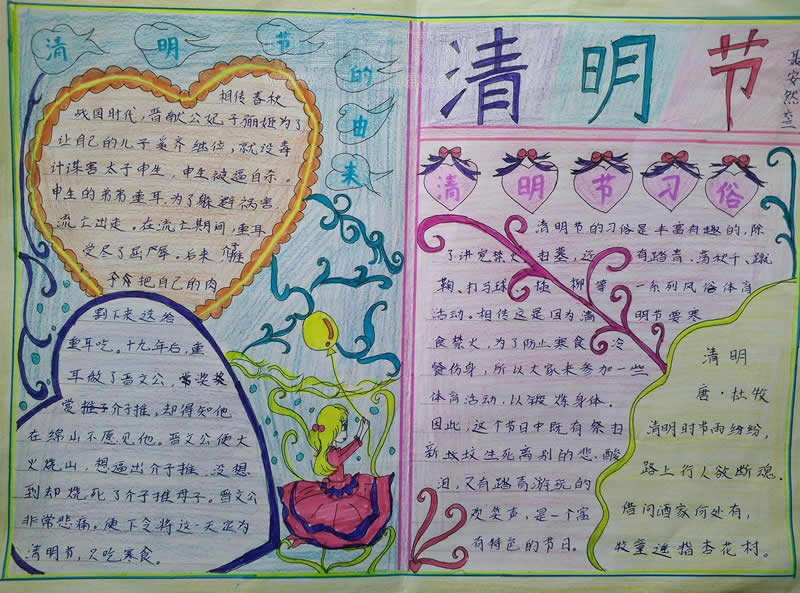 清明节的由来
相传春秋
战国时代，晋献公妃子骊姬为了
让自己的儿子奚齐继位，就设毒
计谋害太子申生，申生被逼自杀。
申生的弟弟重耳，为了躲避祸害，
流亡出走。在流亡期间，重耳
受尽了屈辱。后来
介把自己的肉
割下来送给
重耳吃。十九年后，重
耳做了晋文公，
赏介子推，却得知他
在绵山不愿见他。晋文公便火
火烧山，想逼出介子推，没想
到却烧死了介子推母子。晋文公
非常悲痛。便下令将这一天定为
清明节，只吃寒食。
清明节
聂安然
清明节习俗
清明节的习俗是丰富有趣的，除
了讲究禁火、扫墓，还有踏青、荡秋千、蹴
鞠、打马球、插柳等一系列风俗体育
活动。相传这是因为清明节要寒
食禁火，为了防止寒食冷
餐伤身，所以大家来参加一些
体育活动，以锻炼身体。
因此，这个节日中既有祭扫
新坟生死离别的悲酸
泪，又有踏青游玩的
欢笑声，是一个富
有特色的节日。
清明
唐·杜牧
清明时节雨纷纷，
路上行人欲断魂。
借问酒家何处有，
牧童遥指杏花村。